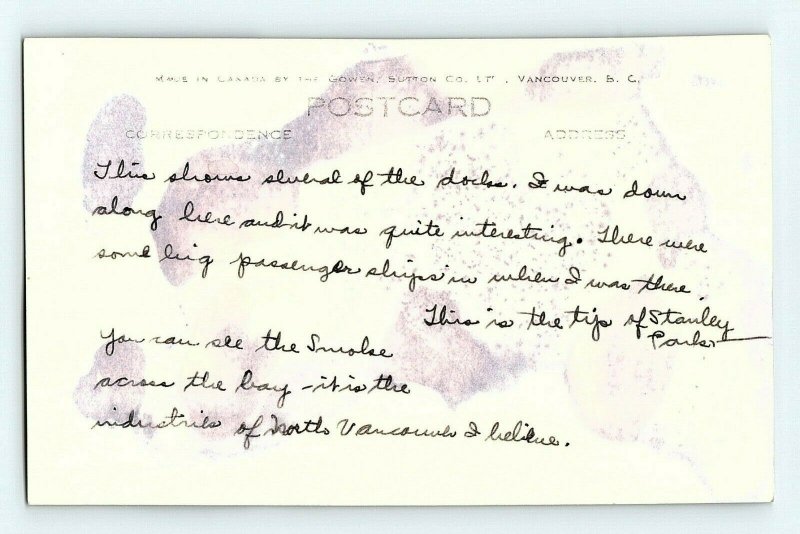 MADE IN CANADA BY THE GOWEN, SUTTON CO. LTD., VANCOUVER, B. C.
POSTCARD
CORRESPONDENCE ADDRESS
This shows several of the docks. I was down
along here and it was quite interesting. There were
some big passenger ships in when I was there.
This is the tip of Stanley
Park
You can see the Smoke
across the bay - it is the
industries of North Vancouver I believe.